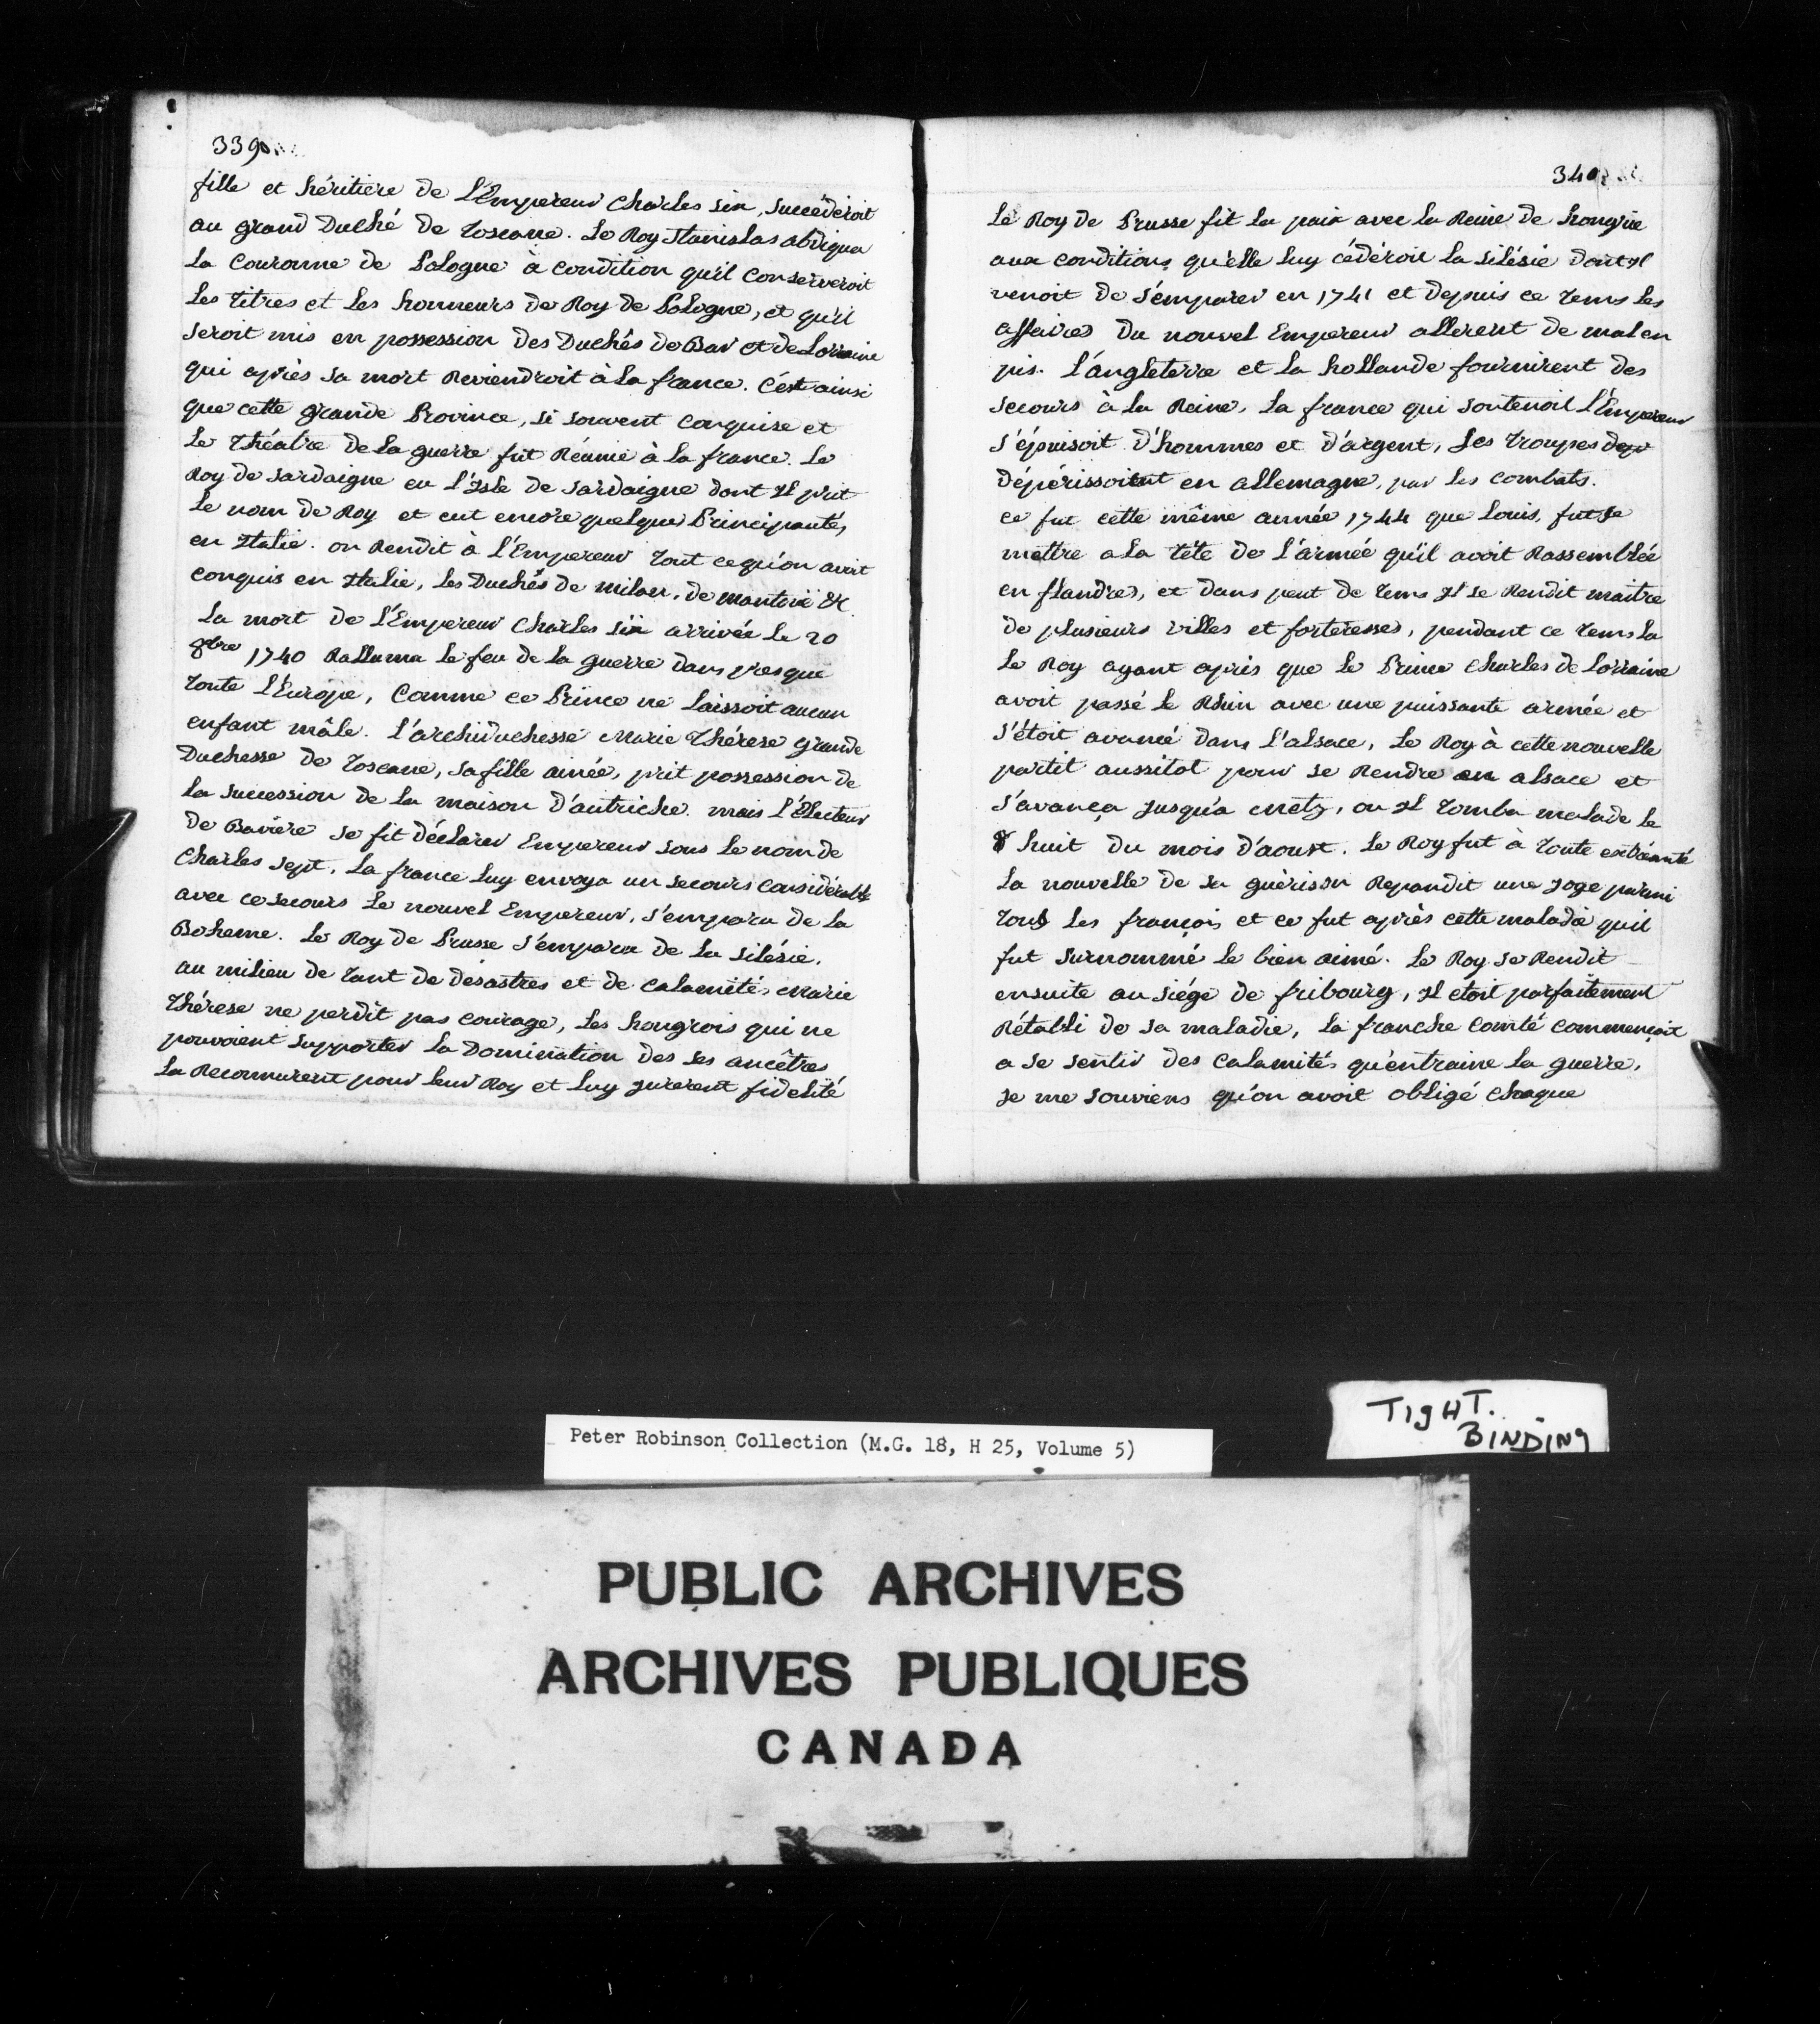 339
fille et héritiere de L'Empereur Charles six, succéderoit
au grand Duché de Toscane. Le Roy Stanislas abdiqua
La Couronne de Pologne à condition qu'il conserveroit
Les titres et Les honneurs de Roy de Pologne, et qu'il
seroit mis en possession des Duchés de Bar et de Lorraine
qui après sa mort Reviendroit à La france. C'est ainsi
que cette grande Province, si souvent conquise et
Le théatre de La guerre fut Réunie à La france. Le
Roy de Sardaigne eu L'Isle de Sardaigne dont Il prit
Le nom de Roy et eut encore quelques Principautés
en Italie. on Rendit à L'Empereur tout ce qu'on avoit
conquis en Italie, Les Duchés de milan, de mantoüe &c
La mort de L'Empereur Charles six arrivée Le 20
8bre 1740 Ralluma Le feu de La guerre dans presque
toute L'Europe, Comme ce Prince ne Laissoit aucun
enfant mâle. L'archiduchesse Marie Thérese grande
Duchesse de Toscane, sa fille ainée, prit possession de
La succession de La maison D'autriche. mais L'Electeur
De Bavière se fit Déclarer Empereur sous Le nom de
Charles sept. La france Luy envoya un secours considérable
avec ce secours Le nouvel Empereur, s'empara de La
Boheme. Le Roy de Prusse s'empara de La Silésie.
au milieu de tant de desastres et de calamités Marie
Thérese ne perdit pas courage, Les hongrois qui ne
pouvoient supporter La Domination des ses ancêtres
La Reconnurent pour leur Roy et Luy jurerent fidelité
340
Le Roy de Prusse fit La paix avec La Reine de hongrie
aux conditions qu'elle Luy céderoit La Silésie dont Il
venoit de s'emparer en 1741 et depuis ce tems Les
affaires Du nouvel Empereur allerent de mal en
pis. L'angleterre et La hollande fournirent des
secours à La Reine. La france qui soutenoit L'Empereur
s'épuisoit D'hommes et D'argent, Les troupes
Dépérissoient en allemagne, par Les combats.
ce fut cette même année 1744 que Louis, fut se
mettre a La tête de L'armée qu'il avoit Rassemblée
en flandres, et dans peut de tems Il se Rendit maitre
De plusieurs villes et forteresses, pendant ce tems La
Le Roy ayant apris que Le Prince Charles de Lorraine
avoit passé Le Rhin avec une puissante armée et
s'étoit avancé Dans L'alsace, Le Roy à cette nouvelle
partit aussitot pour se Rendre en alsace et
s'avança Jusqu'a Metz, ou Il tomba malade Le
huit Du mois D'aoust. Le Roy fut à toute extrémité
La nouvelle de sa guérison Repandit une Joye parmi
tous Les françois et ce fut après cette maladie qu'il
fut surnommé Le bien aimé. Le Roy se Rendit
ensuite au siége de fribourg, Il etoit parfaitement
Rétabli de sa maladie, La franche Comté commençoit
a se sentir des calamités qu'entraine La guerre,
Je me souviens qu'on avoit obligé chaque
Peter Robinson Collection (M.G. 18, H 25, Volume 5)
TIGHT.
BINDING
PUBLIC ARCHIVES
ARCHIVES PUBLIQUES
CANADA